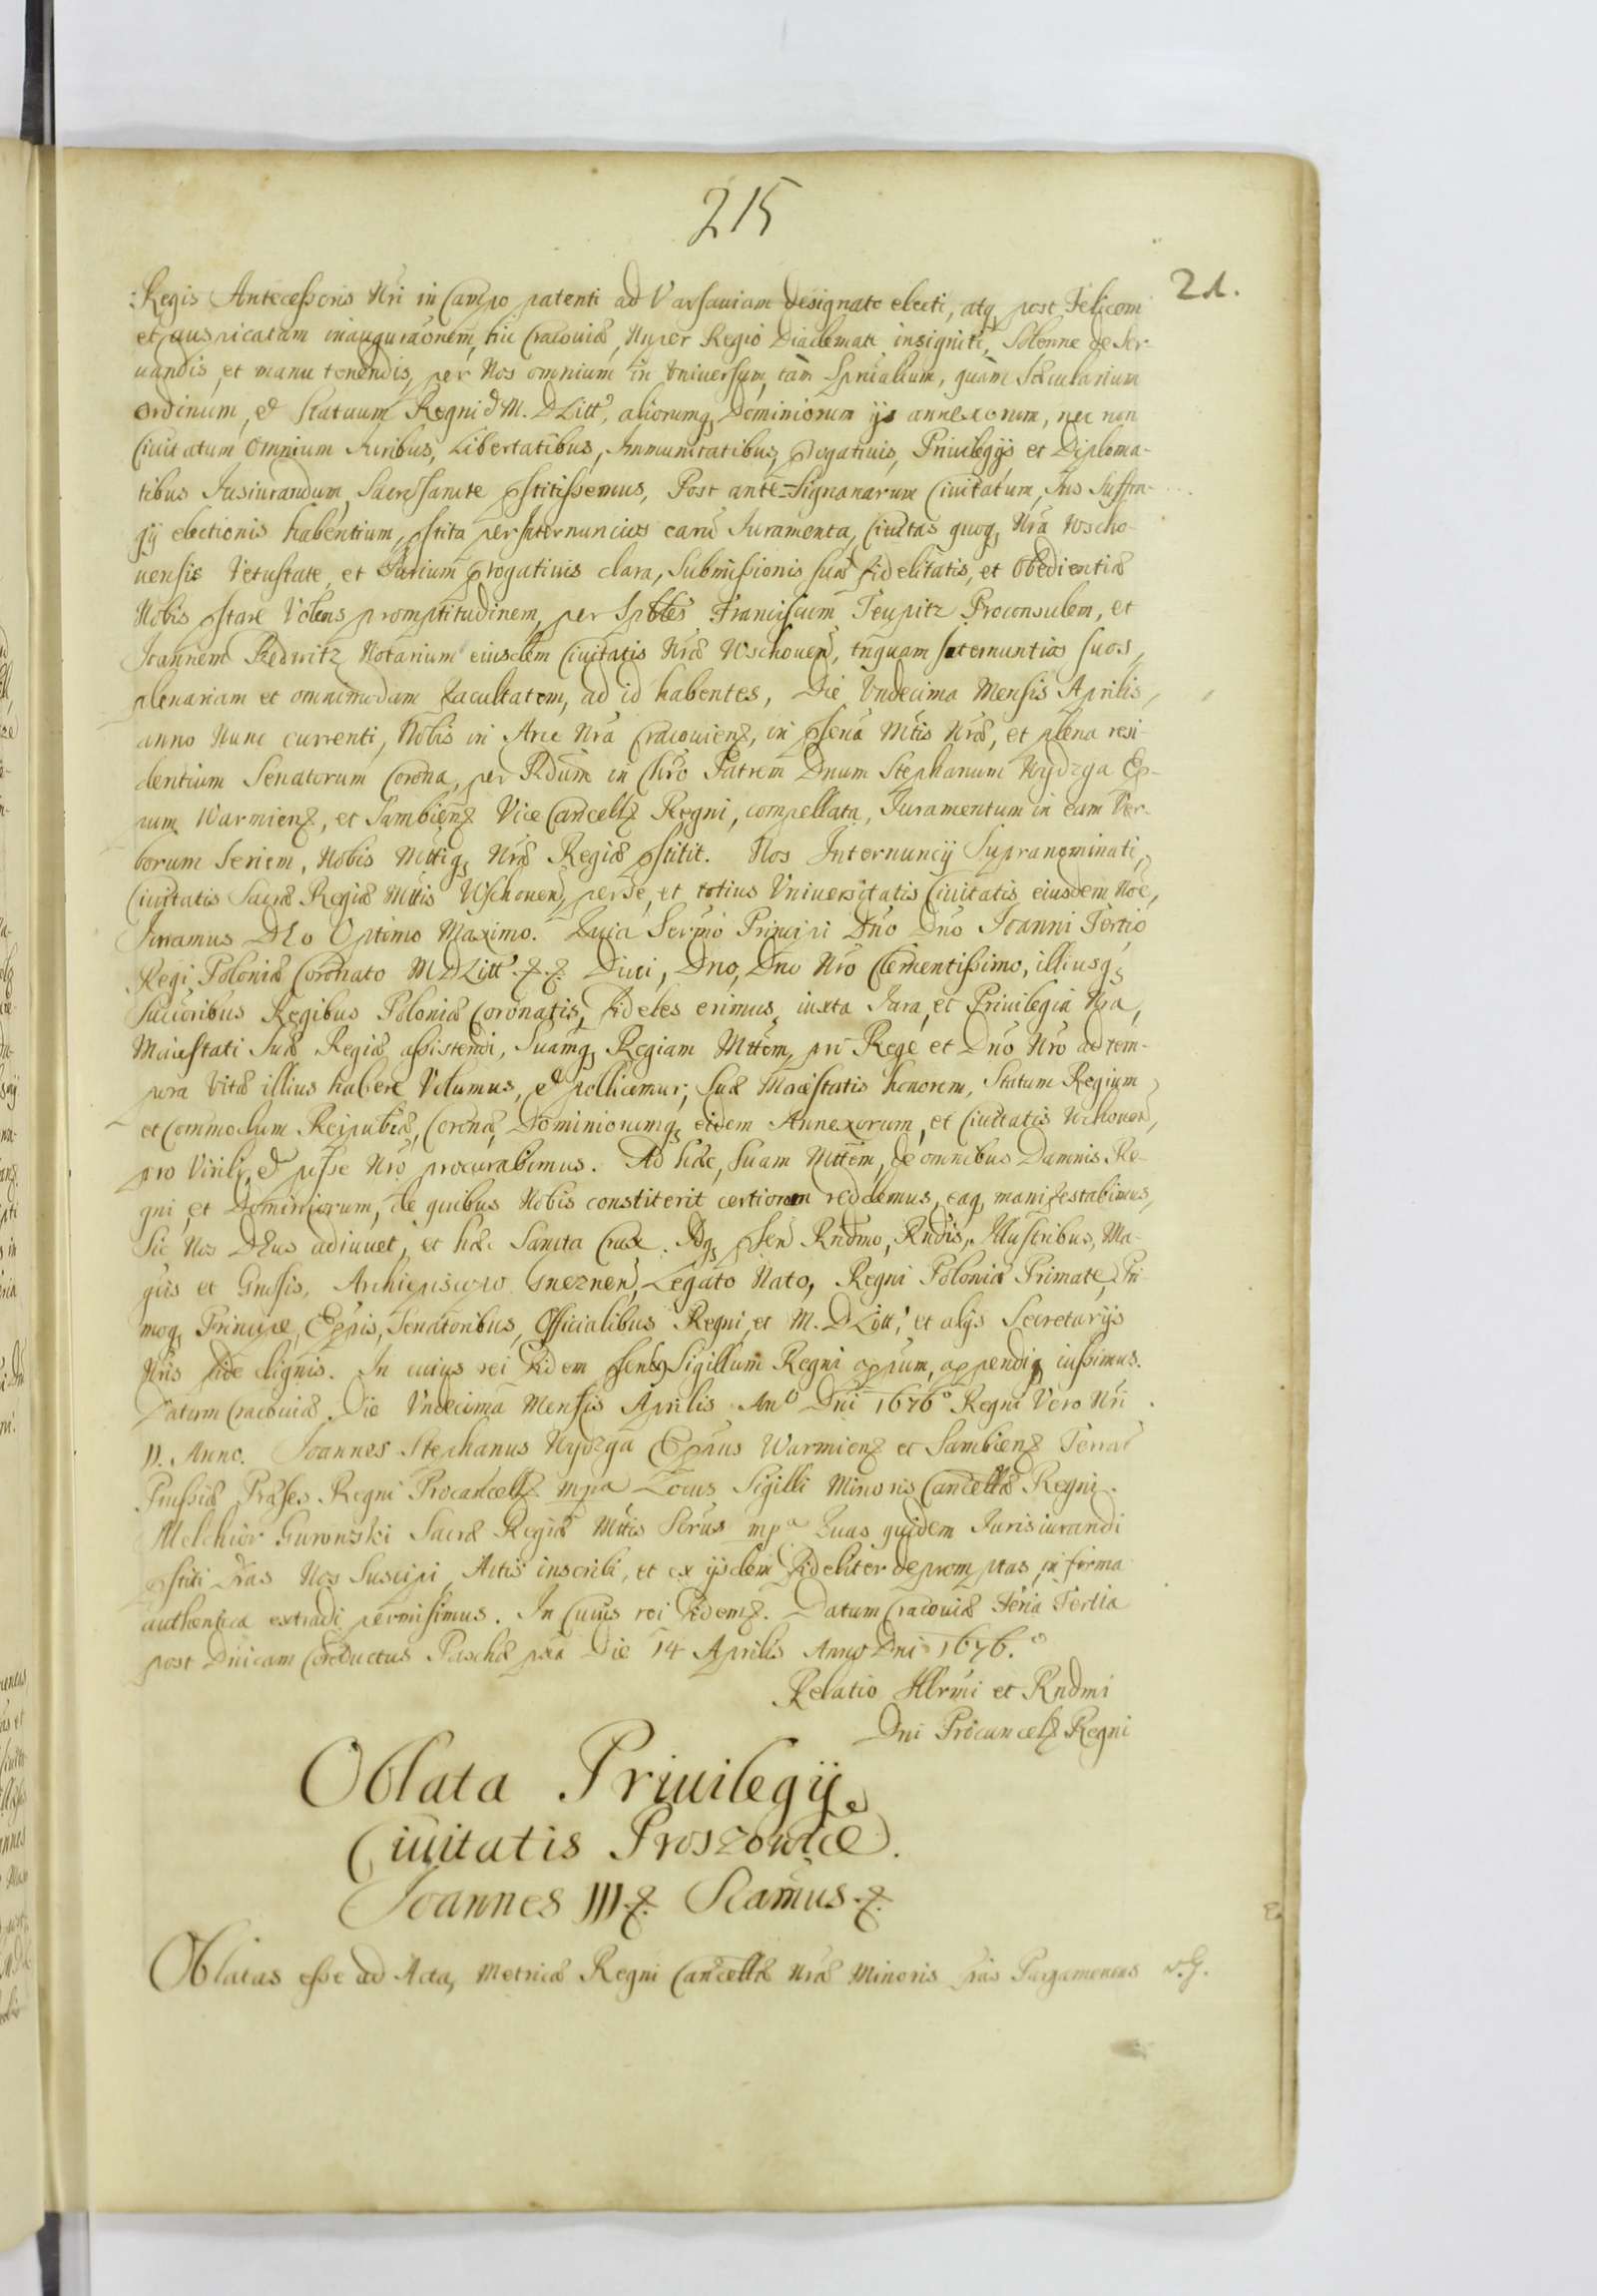 215
21.
Regis Antecessoris Nri in Campo patenti ad Varsauiam designato electi, atq, post Felicem
et auspicatam inauguraonem, hic Cracouiæ, Nuper Regio Diademate insigniti, Solenne de Ser-
uandis, et manu tenendis, per Nos omnium in Vniversum, tàm Spritalium, quàm Sæcularium
Ordinum, et Statuum Regni et M. D Litt, aliorumq, Dominiorum ijs annexorum, nec non
Ciuitatum Omnium Iuribus, Libertatibus, Immunitatibus, progatiuis, Priuilegijs et Diploma-
tibus Iusiurandum, Sacrosancte pstitissemus, Post ante-Signanarum Ciuitatum, Ius Suffra-
gij electionis habentium, pstita per Internuncios earu Iuramenta, Ciuitas quoq, Nra Wscho-
uensis Vetustate, et Iurium progatiuis clara, Submissionis suæ fidelitatis, et Obedientiæ
Nobis pstare Volens promptitudinem, per Spbles Franciscum Teupitz Proconsulem, et
Ioannem Redwitz Notarium eiusdem Ciuitatis Nræ Wschouen, tnquam Internuntios suos,
plenariam et omnimodam facultatem, ad id habentes, Die Vndecima Mensis Aprilis,
anno Nunc currenti, Nobis in Arce Nra Cracouien, in psena Mtis Nræ, et plena resi-
dentium Senatorum Corona, per Rdum in Chro Patrem Dnum Stephanum Wydzga Ep-
pum Warmien, et Sambien Vice Cancell Regni, compellata, Iuramentum in eam Ver-
borum Seriem, Nobis Mttiq, Nræ Regiæ pstitit. Nos Internuncij Supranominati,
Ciuitatis Sacræ Regiæ Mttis Wschouen, per Se, et totius Vniuersitatis Ciuitatis eiusdem Noe,
Iuramus DEo Optimo Maximo. Quia Sermo Principi Dno Dno Ioanni Tertio
Regi Poloniæ Coronato M D Litt. &. &. Duci, Dno, Dno Nro Clementissimo, illiusq,
Succoribus Regibus Poloniæ Coronatis, Fideles erimus, iuxta Iura, et Priuilegia Nra,
Maiestati Suæ Regiæ assistendi, Suamq, Regiam Mttem, pri Rege et Dno Nro ad tem-
pora Vitæ illius habere Volumus, et pollicemur; Suæ Maiestatis honorem, Statum Regium
et Commodum Reipublæ, Coronæ, Dominiorumq, eidem Annexorum, et Ciuitatis Wschouen,
pro Virili, et posse Nro procurabimus. Ad hæc, Suam Mttem, de omnibus Damnis Re-
gni, et Dominiorum, de quibus Nobis constiterit certiorem reddemus, eaq, manifestabimus,
Sic Nos DEus adiuuet, et hæc Sancta Crux. Atq, psen Rndmo, Rndis, Illustribus, Ma-
gcis et Gnosis, Archiepiscopo Gneznen, Legato Nato, Regni Poloniæ Primate, Pri
moq, Principe, Eppis, Senatoribus, Officialibus Regni, et M. D Litt, et alijs Secretarijs
Nris fide dignis. In cuius rei Fidem psentib, Sigillum Regni appsum, appendi iussimus.
Datum Cracouiæ, Die Vndecima Mensis Aprilis Ano Dni 1676o Regni Vero Nri
II. Anno. Ioannes Stephanus Wydzga Eppus Warmien et Sambien Terrar
Prussiæ Præses Regni Procancell mpa Locus Sigilli Minoris Cancellæ Regni.
Melchior Gurowski Sacræ Regiæ Mttis Scrus mpa Quas quidem Iurisiurandi
pstiti Lras Nos Suscipi, Actis inscribi, et ex ijsdem fideliter depromptas, in forma
authentica extradi permisimus. In Cuius rei fidem &. Datum Cracouiæ Feria Tertia
post Dnicam Conductus Paschæ pxa Die 14 Aprilis Anno Dni 1676.o
Relatio Illrmi et Rndmi
Dni Procancell Regni
Oblata Priuilegij
Ciuitatis Proszowicæ.
Ioannes III. &. Scamus. &.
Oblatas esse ad Acta, Metricæ Regni Cancellæ Nræ Minoris Lras Pargameneas v. G.